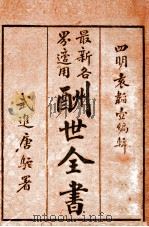 四明袁韜壺編輯
最新各界適用
酬世全書
武進唐駝署